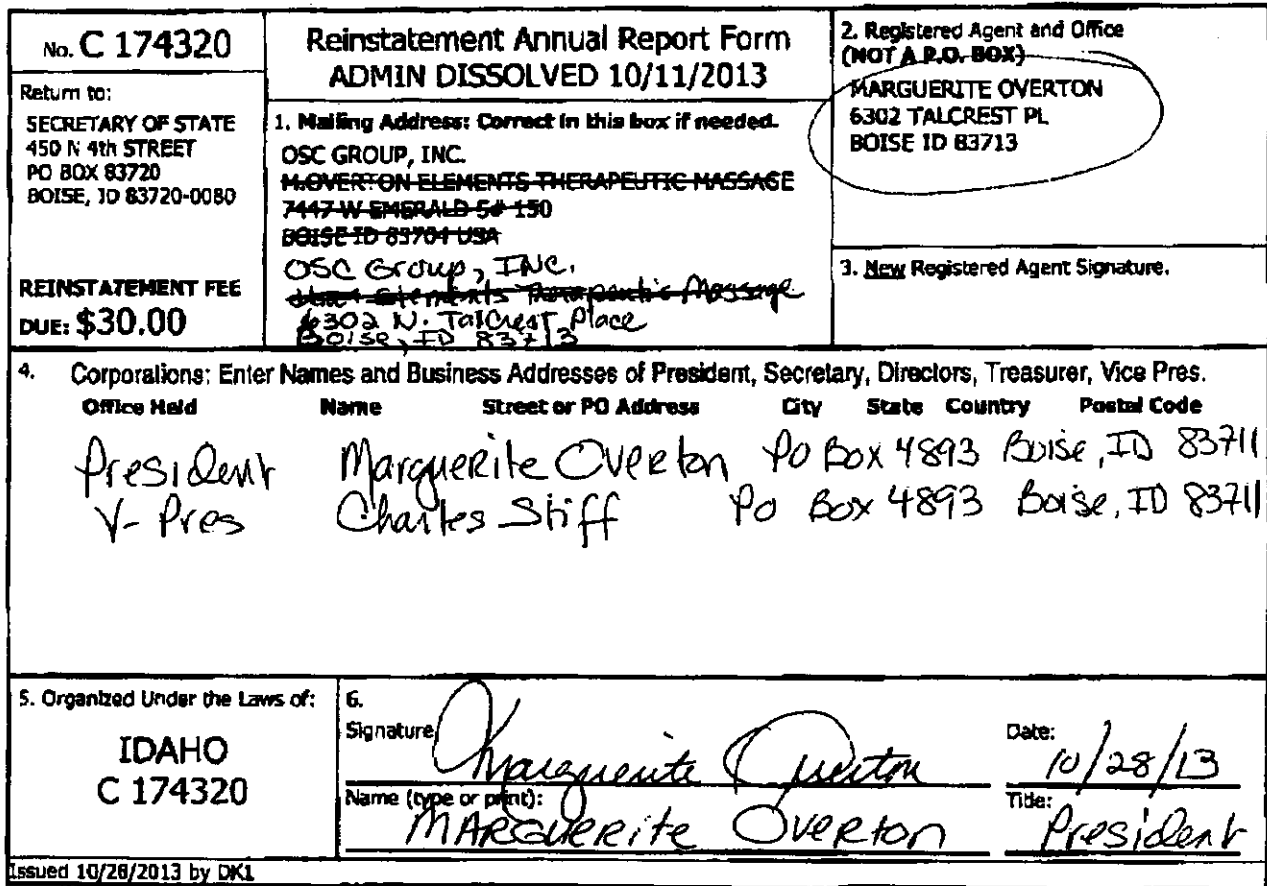 No. C 174320
Return to:
SECRETARY OF STATE
450 N 4th STREET
PO BOX 83720
BOISE, ID 83720-0080
REINSTATEMENT FEE
DUE: $30.00
Reinstatement Annual Report Form
ADMIN DISSOLVED 10/11/2013
1. Mailing Address: Correct in this box if needed.
OSC GROUP, INC.
M.OVERTON ELEMENTS THERAPEUTIC MASSAGE
7447 W EMERALD S# 150
BOISE ID 83704 USA
OSC Group, INC.
Elements Therapeutic Massage
6302 N. Talcrest Place
Boise, ID 83713
2. Registered Agent and Office
(NOT A P.O. BOX)
MARGUERITE OVERTON
6302 TALCREST PL
BOISE ID 83713
3. New Registered Agent Signature.
4. Corporations: Enter Names and Business Addresses of President, Secretary, Directors, Treasurer, Vice Pres.
Office Held Name Street or PO Address City State Country Postal Code
President Marguerite Overton PO Box 4893 Boise, ID 83711
V-Pres Charles Stiff Po Box 4893 Boise, ID 83711
5. Organized Under the Laws of:
IDAHO
C 174320
6.
Signature Marguerite Overton
Date: 10/28/13
Name (type or print): MARGUERite Overton
Title: President
Issued 10/28/2013 by DK1